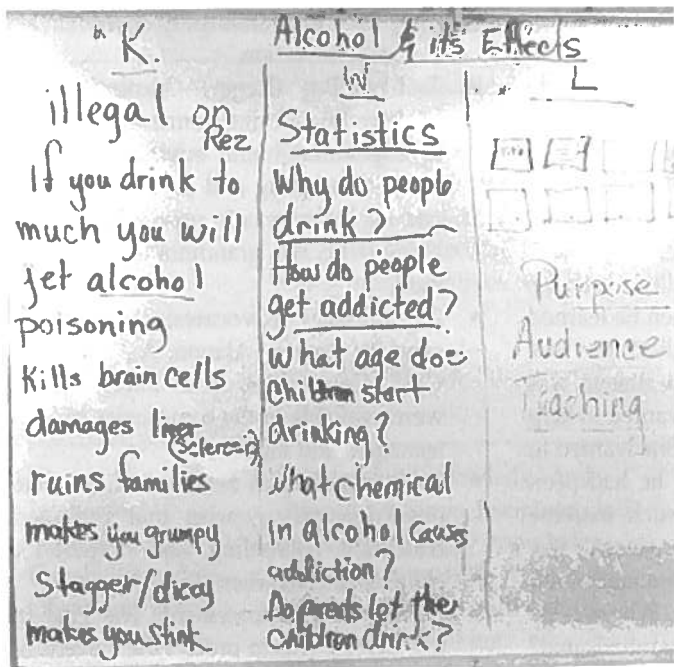 Alcohol & its Effects
"K.
illegal on
Rez
If you drink to
much you will
get alcohol
poisoning
Kills brain cells
damages liver
(Sclerosis)
ruins families
makes you grumpy
Stagger/dizzy
makes you stink
W
Statistics
Why do people
drink?
How do people
get addicted?
What age does
Children start
drinking?
What Chemical
In alcohol causes
addiction?
Do parents let the
children drink?
L
Title
Purpose
Audience
Teaching